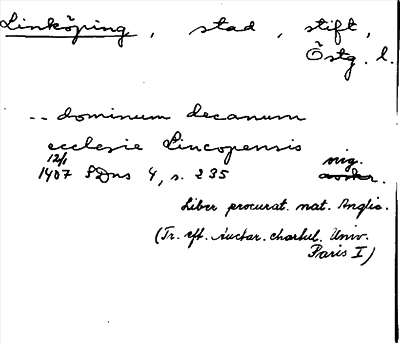 Linköping, stad, stift,
Östg. l.
-- dominum decanum
ecclesie Lincopensis
12/1
1407 SDns 4, s. 235 nig.
avskr.
Liber procurat. nat. Anglic.
(Tr. eft. Auctar. chartul. Univ.
Paris I)